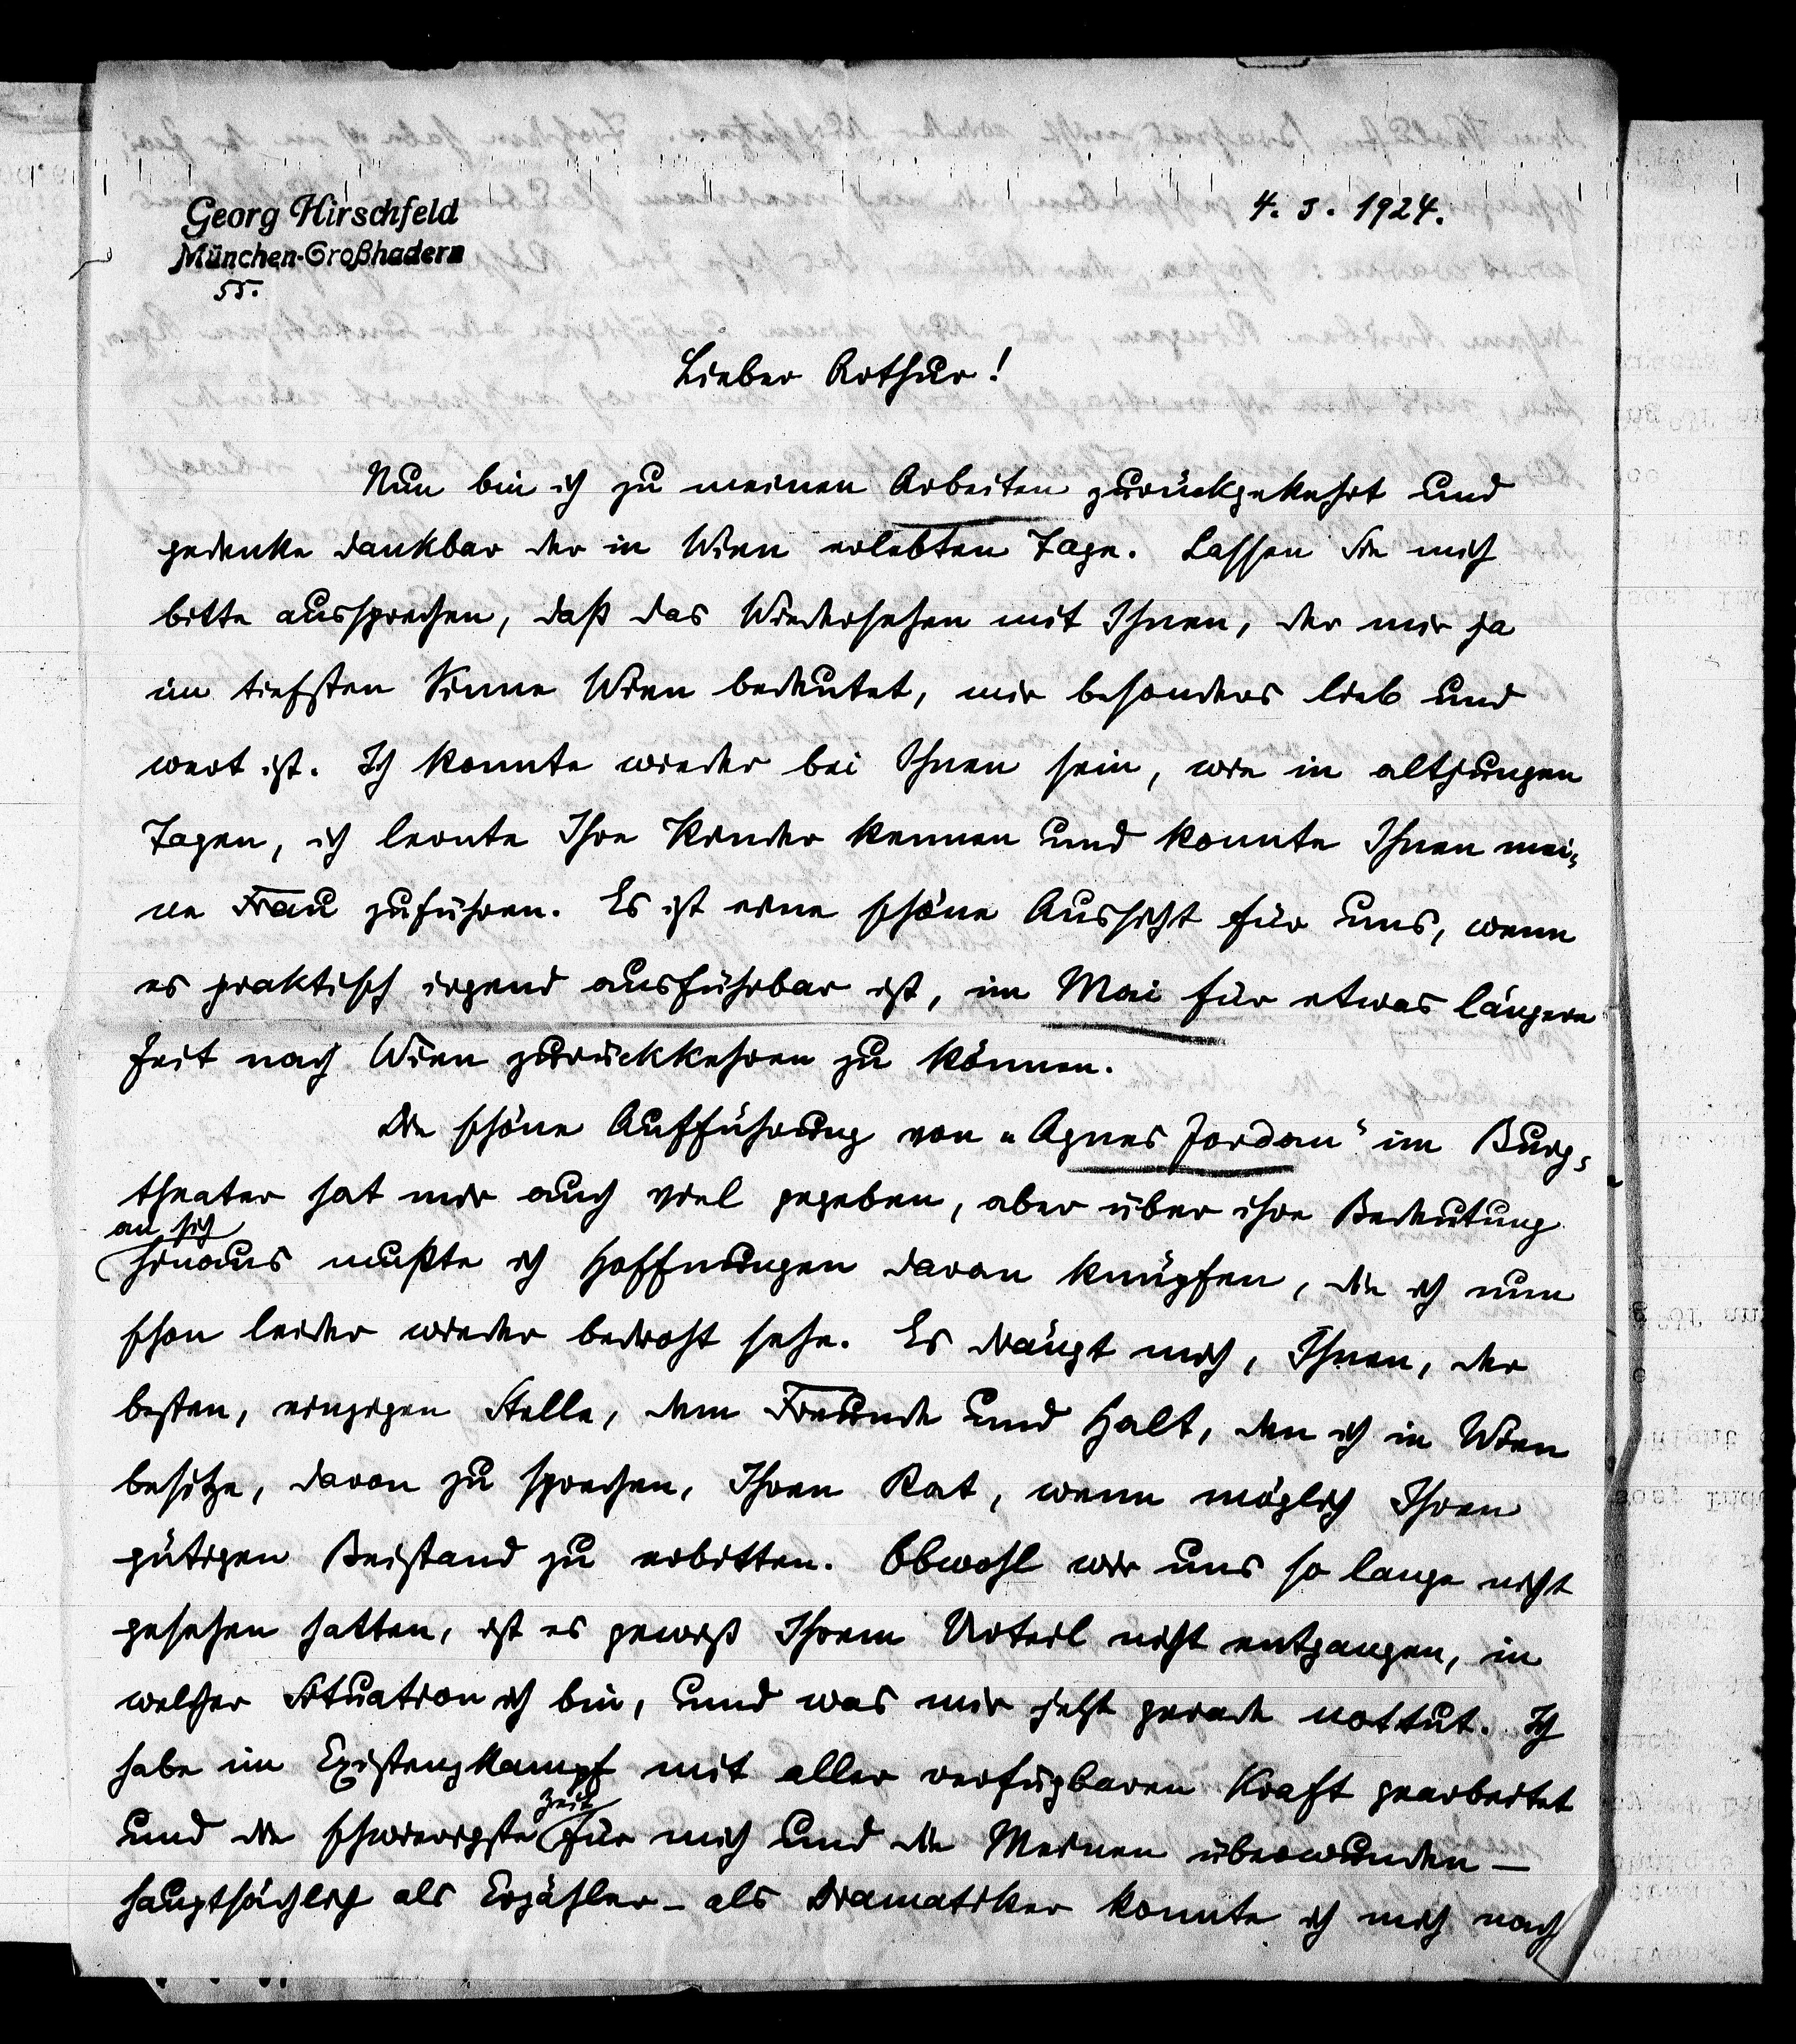 Georg Hirschfeld
München-Großhadern
55.
4. 3. 1924.
Lieber Arthur!
Nun bin ich zu meinen Arbeiten zurückgekehrt und
gedenke dankbar der in Wien erlebten Tage. Lassen Sie mich
bitte aussprechen, daß das Wiedersehen mit Ihnen, der mir ja
im tiefsten Sinne Wien bedeutet, mir besonders lieb und
wert ist. Ich konnte wieder bei Ihnen sein, wie in altjungen
Tagen, ich lernte Ihre Kinder kennen und konnte Ihnen mei-
ne Frau zuführen. Es ist eine schöne Aussicht für uns, wenn
es praktisch irgend ausführbar ist, im Mai für etwas längere
Zeit nach Wien zurückkehren zu können.
Die schöne Aufführung von „Agnes Jordan" im Burg-
theater hat mir auch viel gegeben, aber über ihre Bedeutung
an sich
hinaus mußte ich Hoffnungen daran knüpfen, die ich nun
schon leider wieder bedroht sehe. Es drängt mich, Ihnen, der
besten, einzigen Stelle, dem Freunde und Halt, den ich in Wien
besitze, davon zu sprechen, Ihren Rat, wenn möglich Ihren
gütigen Beistand zu erbitten. Obwohl wir uns so lange nicht
gesehen hatten, ist es gewiß Ihrem Urteil nicht entgangen, in
welcher Situation ich bin, und was mir jetzt gerade nottut. Ich
habe im Existenzkampf mit aller verfügbaren Kraft gearbeitet
und die schwierigste Zeit für mich und die Meinen überwunden –
hauptsächlich als Erzähler – als Dramatiker konnte ich mich nach